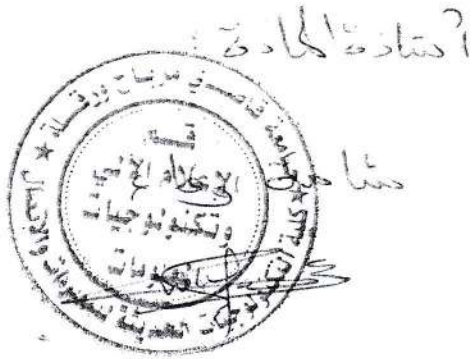 أستاذة المادة :
جامعة قاصدي مرباح ورقلة
كلية التكنولوجيات الحديثة للمعلومات والاتصال
قسم
الإعلام الآلي
وتكنولوجيات
المعلومات